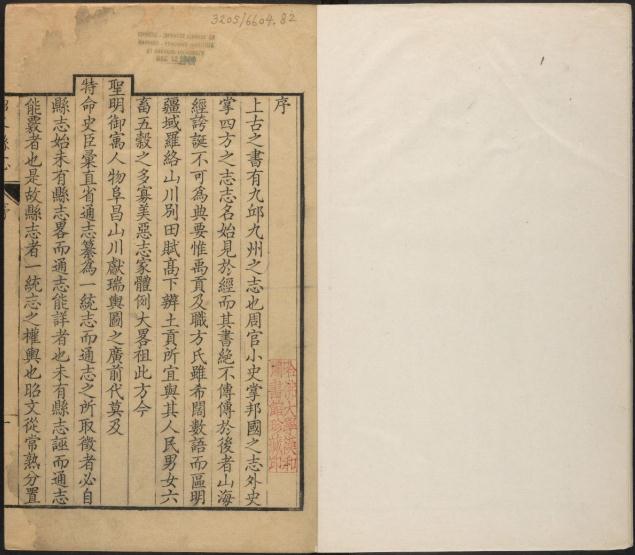 3205/6604.82
序
上古之書有九邱九州之志也周官小史掌邦國之志外史
掌四方之志志名始見於經而其書絶不傳傳於後者山海
經誇誕不可為典要惟禹貢及職方氏雖希闊數語而區明
疆域羅絡山川别田賦高下辨土貢所宜與其人民男女六
畜五穀之多寡美惡志家體例大畧祖此方今
聖明御寓人物阜昌山川獻瑞輿圖之廣前代莫及
特命史臣彙直省通志纂為一統志而通志之所取徵者必自
縣志始未有縣志畧而通志能詳者也未有縣志誣而通志
能覈者也是故縣志者一統志之權輿也昭文從常熟分置
哈佛大學漢和
圖書館珍藏印